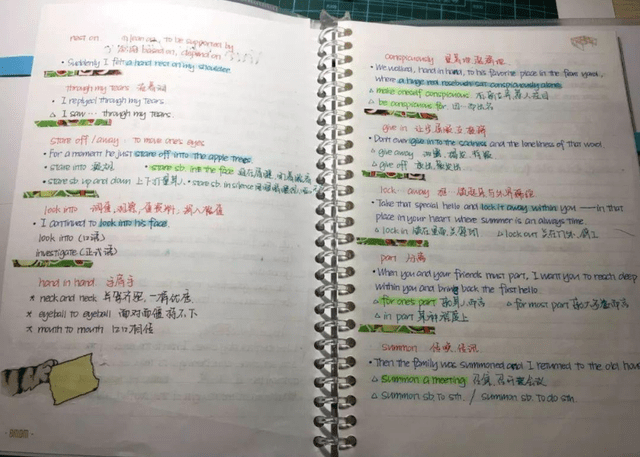 rest on to be supported by
based on, depend on
• Suddenly I felt a hand rest on my shoulder.
through my tears
• I replied through my tears.
△ I saw … through my tears.
stare off / away to move one's eyes
• For a moment he just stare off into the apple trees.
• stare into • stare sb. in the face
• stare sb up and down 上下打量某人 • stare sb. in silence
look into 调查
• I continued to look into his face.
look into (口语)
investigate (正式语)
hand in hand 手牵手
* neck and neck
* eyeball to eyeball 面对面
* mouth to mouth 口口相传
conspicuously
• We walked, hand in hand, to his favorite place in the farm yard,
where a huge red rosebush sat conspicuously alone.
△ make oneself conspicuous
△ be conspicuous for 因…而出名
give in
• Don't ever give in to the sadness and the loneliness of that word.
△ give away
△ give off
lock away
• Take that special hello and lock it away within you — in that
place in your heart where summer is an always time.
△ lock in △ lock out
part 分离
• When you and your friends must part, I want you to reach deep
within you and bring back the first hello.
△ for one's part 就某人而言 △ for most part
△ in part 某种程度上
summon
• Then the family was summoned and I returned to the old house
△ summon a meeting
△ summon sb. to sth. / summon sb. to do sth.